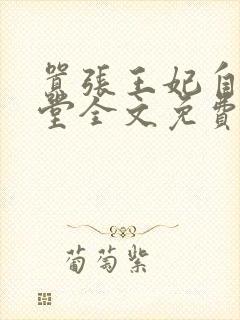 囂張王妃自
堂全文免費
葡萄紫